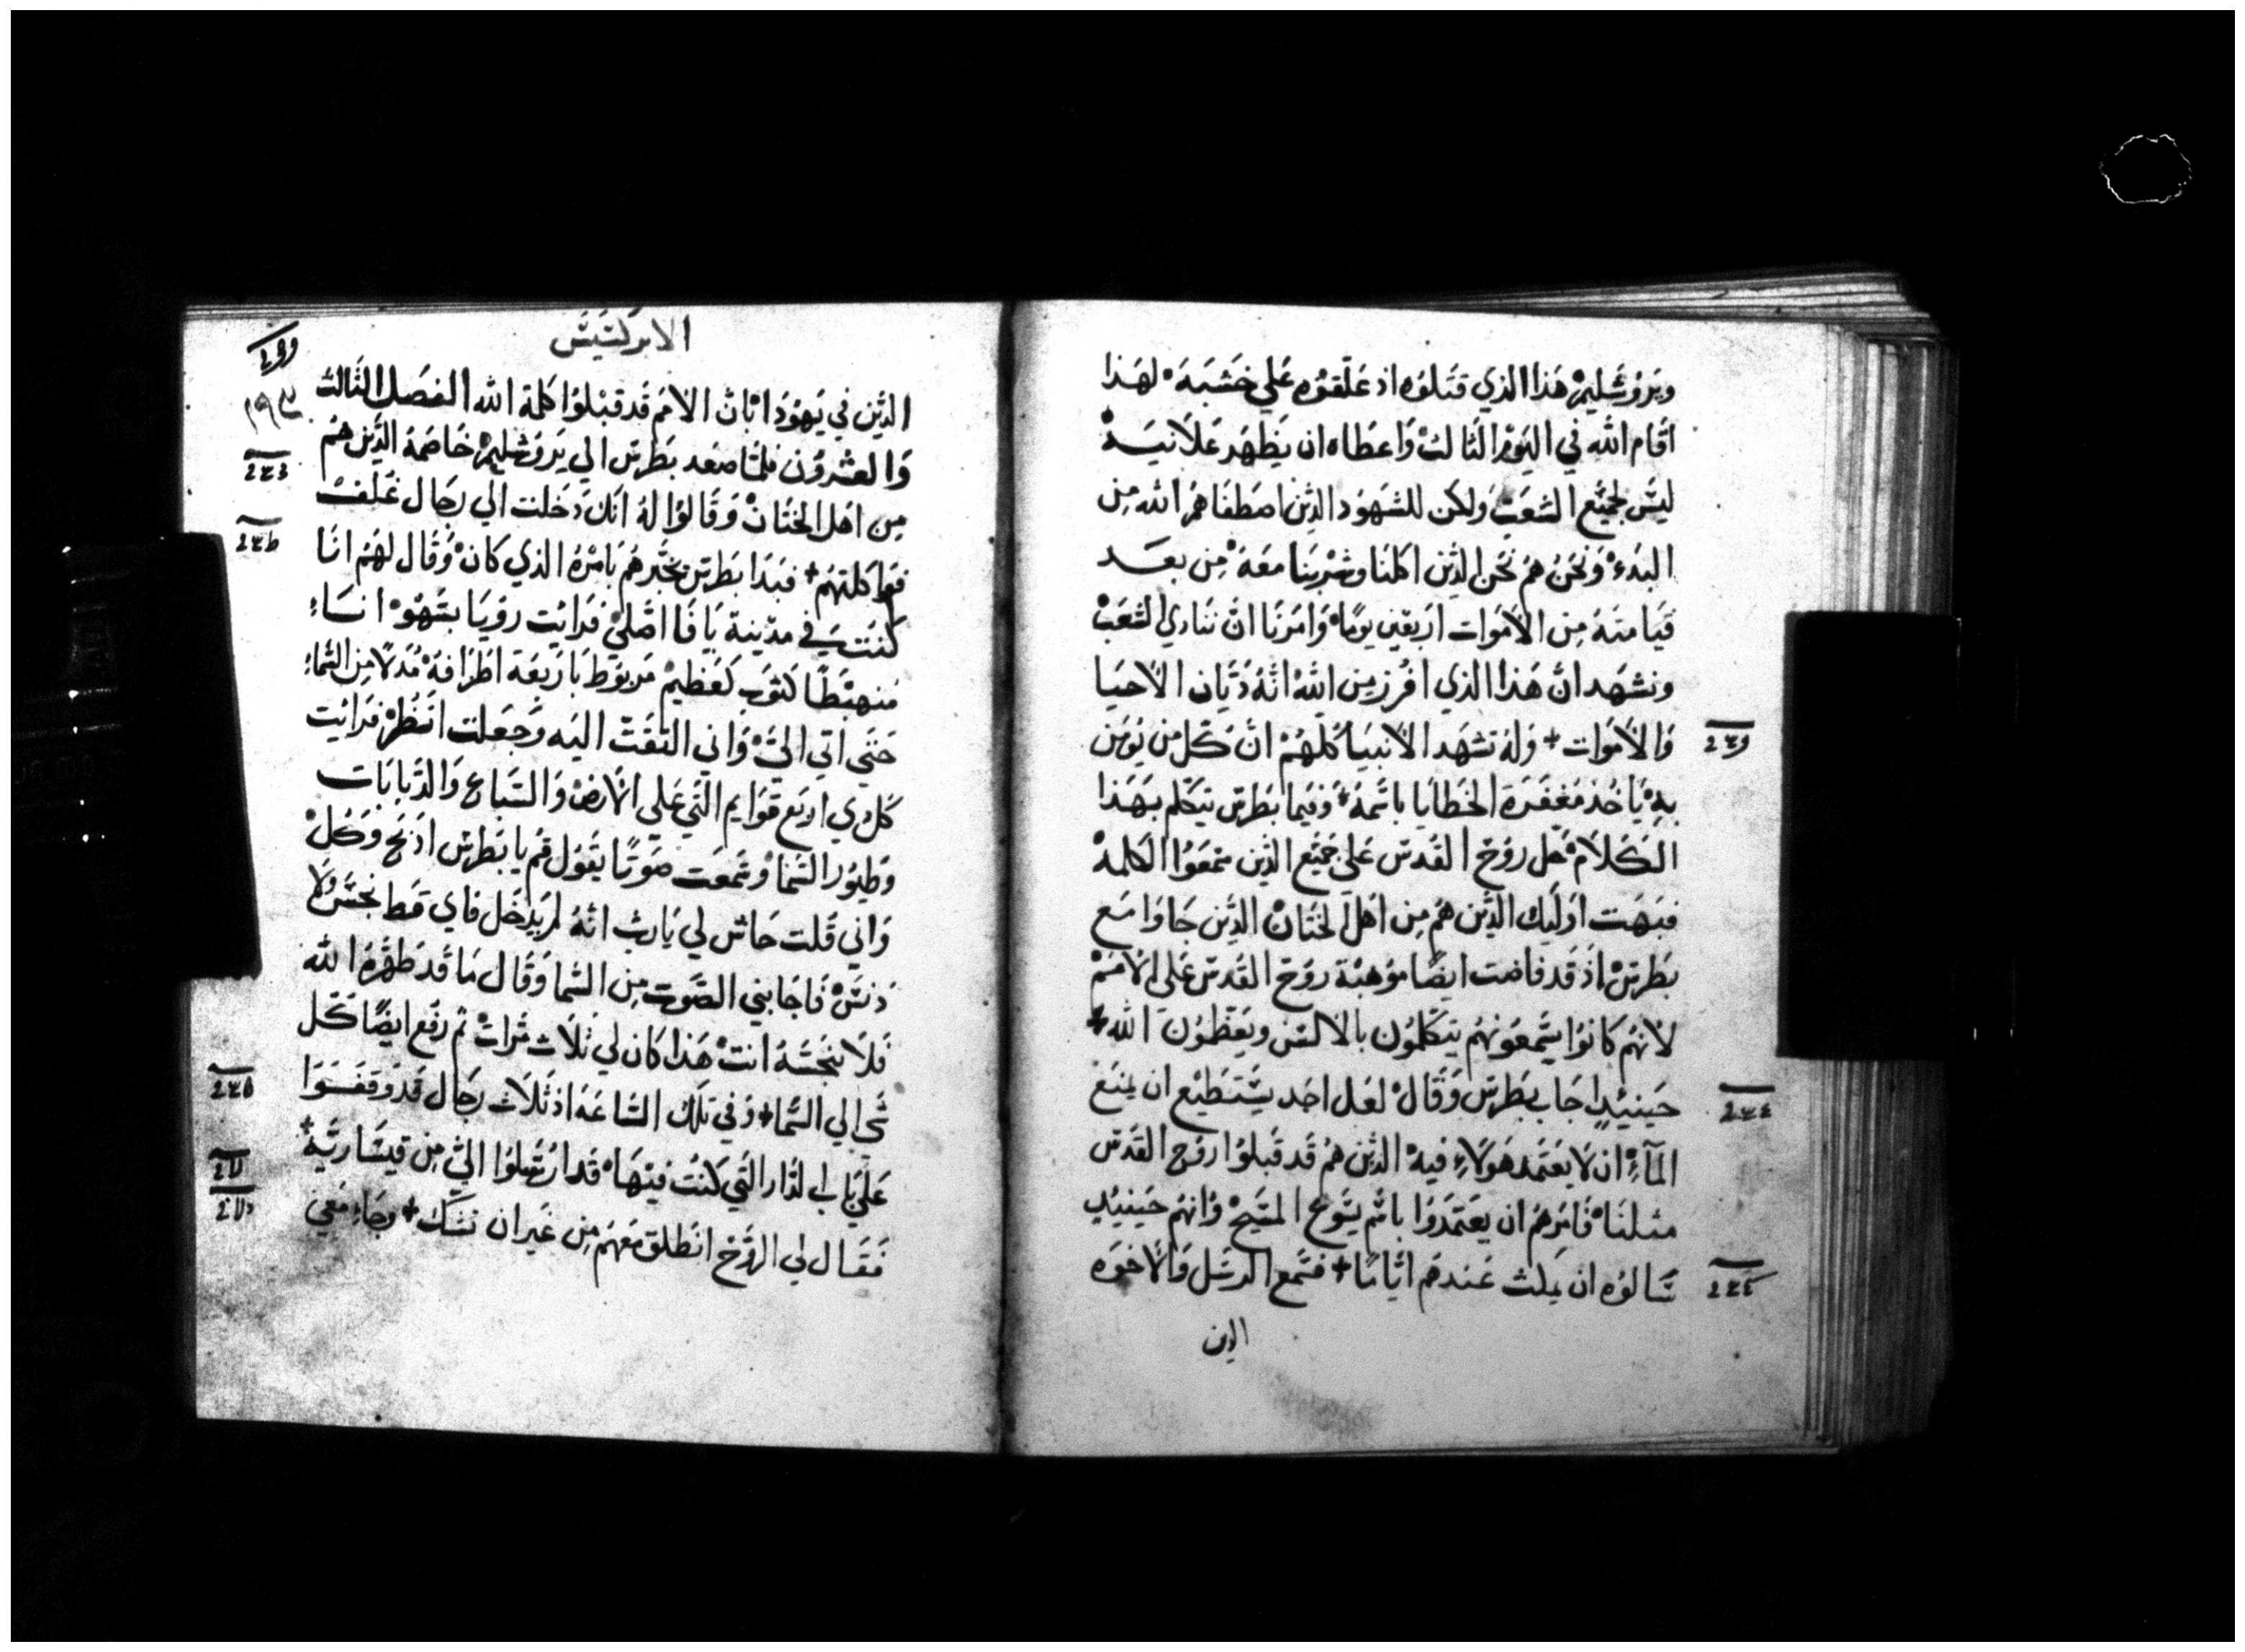 ويروشليم هذا الذي قتلوه اذ علقوه علي خشبة لهذا
اقام الله في اليوم الثالث واعطاه ان يظهر علانية
ليس لجميع الشعب ولكن للشهود الذين اصطفاهم الله من
البدء ونحن هم نحن الذين اكلنا وشربنا معه من بعد
قيامته من الاموات اربعين يوما وامرنا ان ننادي الشعب
ونشهد ان هذا الذي افرز من الله انه ديان الاحيا
والاموات + وله تشهد الانبيا كلهم ان كل من يومن
به ياخذ مغفرة الخطايا باسمه وفيما بطرس يتكلم بهذا
الكلام حل روح القدس علي جميع الذين سمعوا الكلمة
فبهت اوليك الذين هم من اهل الختان الذين جاوا مع
بطرس اذ قد فاضت ايضا موهبة روح القدس علي الامم
لانهم كانوا يسمعونهم يتكلمون بالالسن ويعظمون الله +
حينيذ اجاب بطرس وقال لعل احد يستطيع ان يمنع
المآء ان لا يعتمد هولاء فيه الذين هم قد قبلوا روح القدس
مثلنا فامرهم ان يعتمدوا باسم يسوع المسيح وانهم حينيذ
سالوه ان يملث عندهم اياما + فسمع الرسل والاخوه
الذين
الابركسيس
١٩٣
الذين في يهودا بان الامم قد قبلوا كلمة الله الفصل الثالث
والعشرون فلما صعد بطرس الي يروشليم خاصمه الذين هم
من اهل الختان وقالوا له انك دخلت الي رجال غلف
فواكلتهم + فبدا بطرس يخبرهم بامره الذي كان وقال لهم انا
كنت في مدينة يافا اصلي فرايت رويا بسهو اناء
منهبطا كثوب عظيم مربوط باربعة اطرافه مدلا من السماء
حتي اتي الي واني التفت اليه وجعلت انظر فرايت
كل ذي اربع قوايم التي علي الارض والسباع والدبابات
وطيور السما وسمعت صوتا يقول قم يا بطرس اذبح وكل
واني قلت حاش لي يارب انه لم يدخل فاي قط نجس ولا
دنس فاجابني الصوت من السما وقال ما قد طهره الله
فلا تنجسه انت هذا كان لي ثلاث مرات ثم رفع ايضا كل
شي الي السما + وفي تلك الساعة اذ ثلاث رجال قد وقفوا
علي باب الدار التي كنت فيها قد ارسلوا الي من قيسارية +
فقال لي الروح انطلق معهم من غير ان تشك + وجاء معي